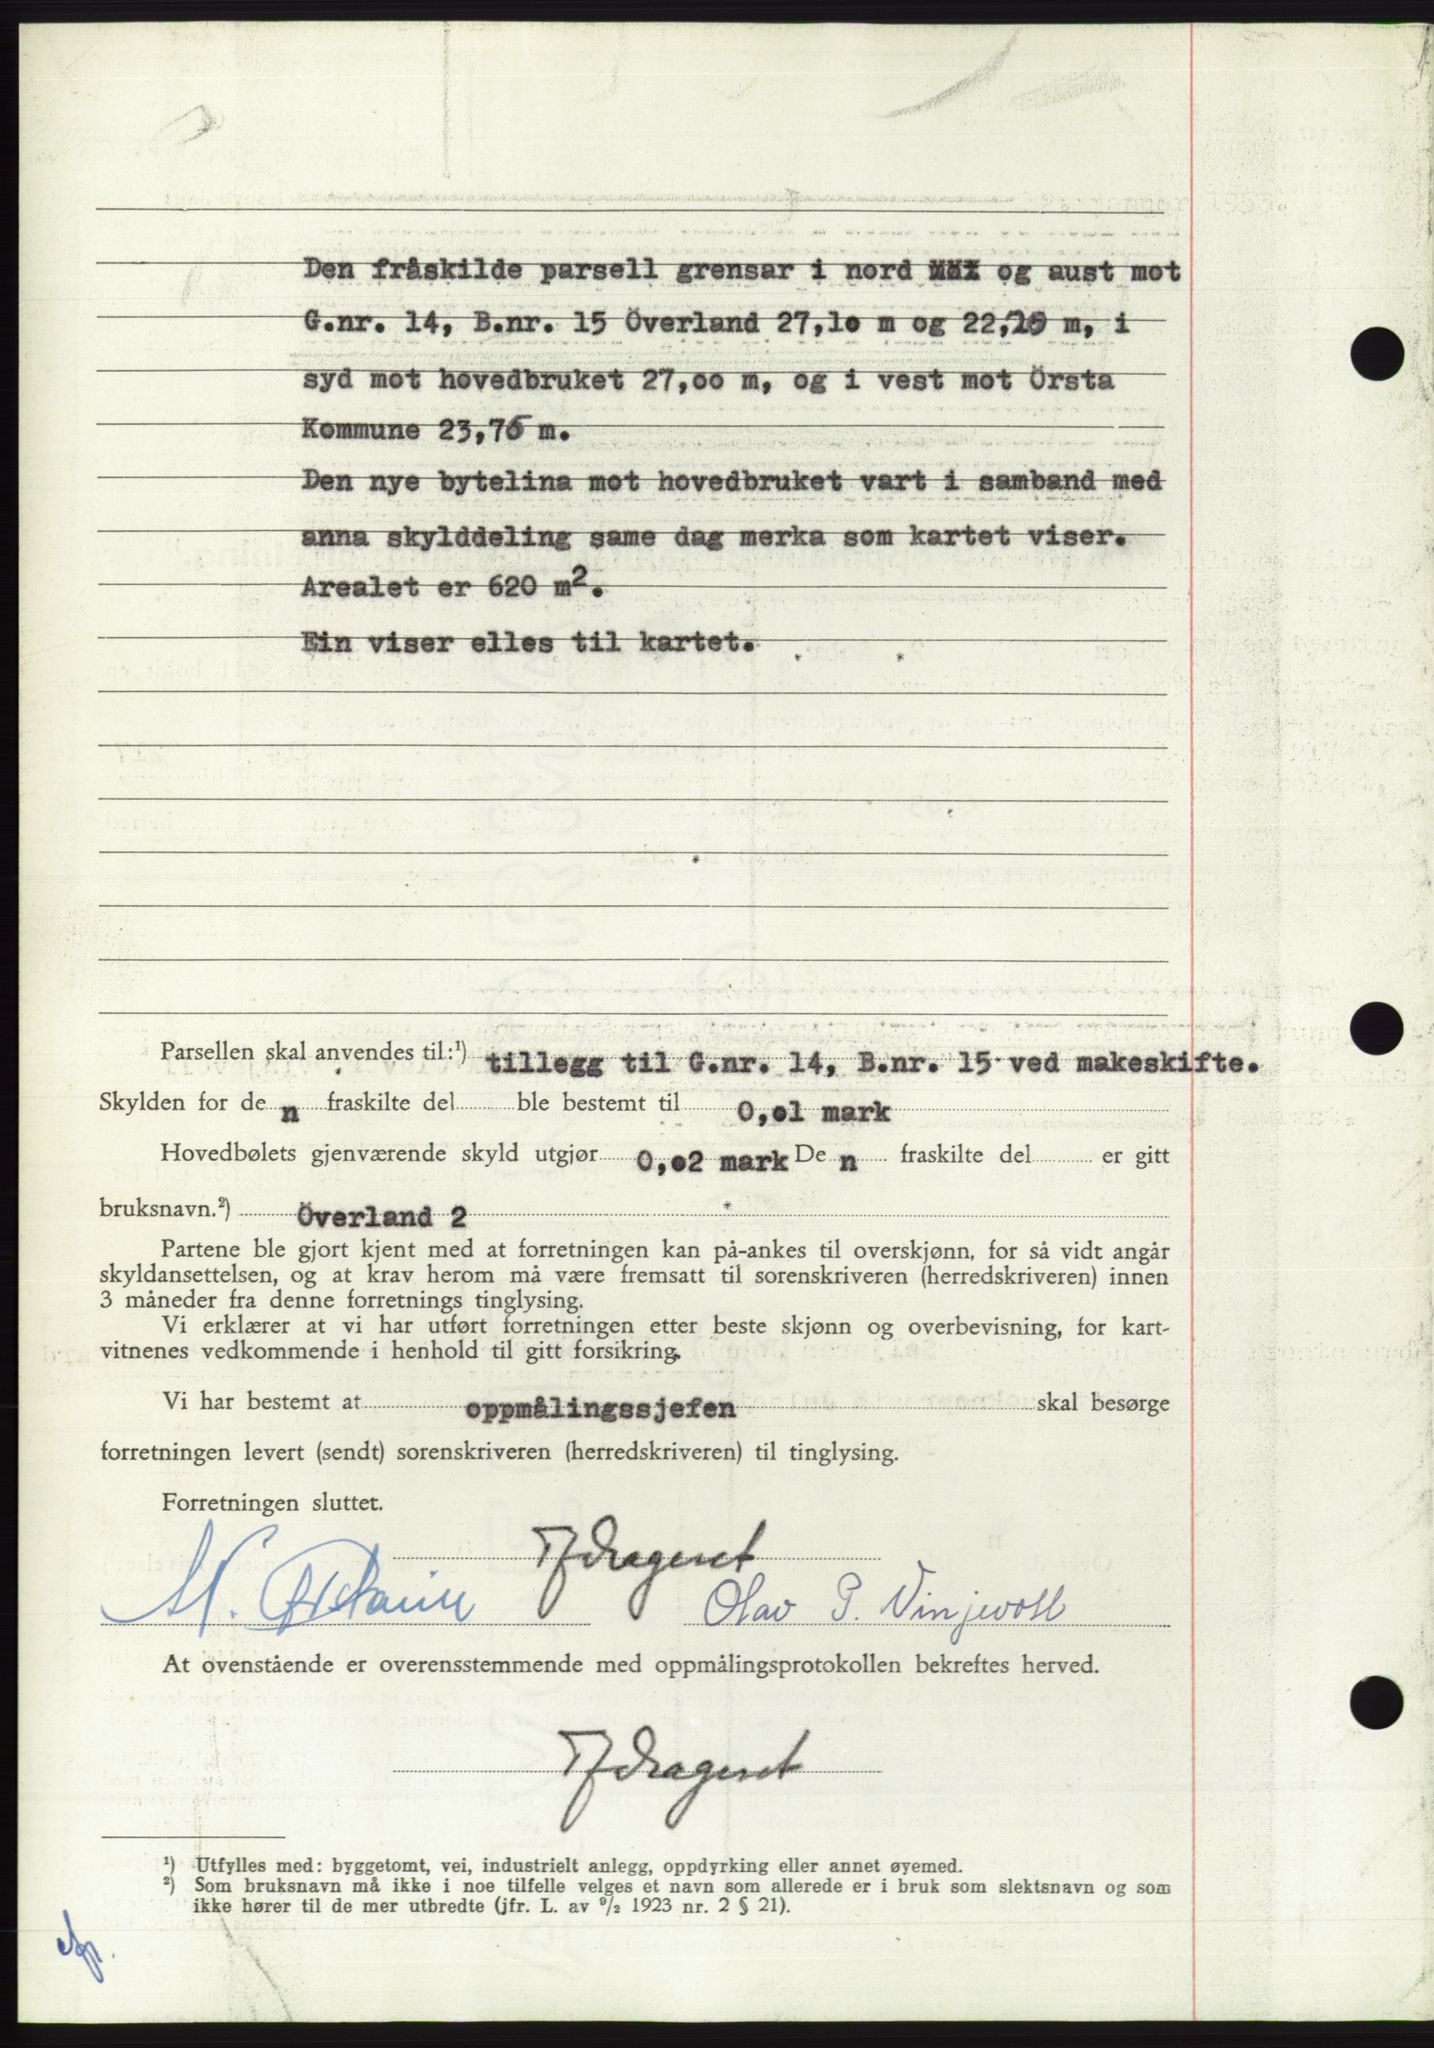 Den fråskilde parsell grensar i nord og aust mot
G.nr. 14, B.nr. 15 Överland 27,1o m og 22, m, i
syd mot hovedbruket 27,oo m, og i vest mot Örsta
Kommune 23,75 m.
Den nye bytelina mot hovedbruket vart i samband med
anna skylddeling same dag merka som kartet viser.
Arealet er 620 m².
Ein viser elles til kartet.
Parsellen skal anvendes til:¹) tillegg til G.nr. 14, B.nr. 15 ved makeskifte.
Skylden for de n fraskilte del ble bestemt til 0,o1 mark
Hovedbølets gjenværende skyld utgjør 0,o2 mark De n fraskilte del er gitt
bruksnavn.²) Överland 2
Partene ble gjort kjent med at forretningen kan på-ankes til overskjønn, for så vidt angår
skyldansettelsen, og at krav herom må være fremsatt til sorenskriveren (herredskriveren) innen
3 måneder fra denne forretnings tinglysing.
Vi erklærer at vi har utført forretningen etter beste skjønn og overbevisning, for kart-
vitnenes vedkommende i henhold til gitt forsikring.
Vi har bestemt at oppmålingssjefen skal besørge
forretningen levert (sendt) sorenskriveren (herredskriveren) til tinglysing.
Forretningen sluttet.
Olav P. Vinjevoll
At ovenstående er overensstemmende med oppmålingsprotokollen bekreftes herved.
¹) Utfylles med: byggetomt, vei, industrielt anlegg, oppdyrking eller annet øyemed.
²) Som bruksnavn må ikke i noe tilfelle velges et navn som allerede er i bruk som slektsnavn og som
ikke hører til de mer utbredte (jfr. L. av ⁹/₂ 1923 nr. 2 § 21).